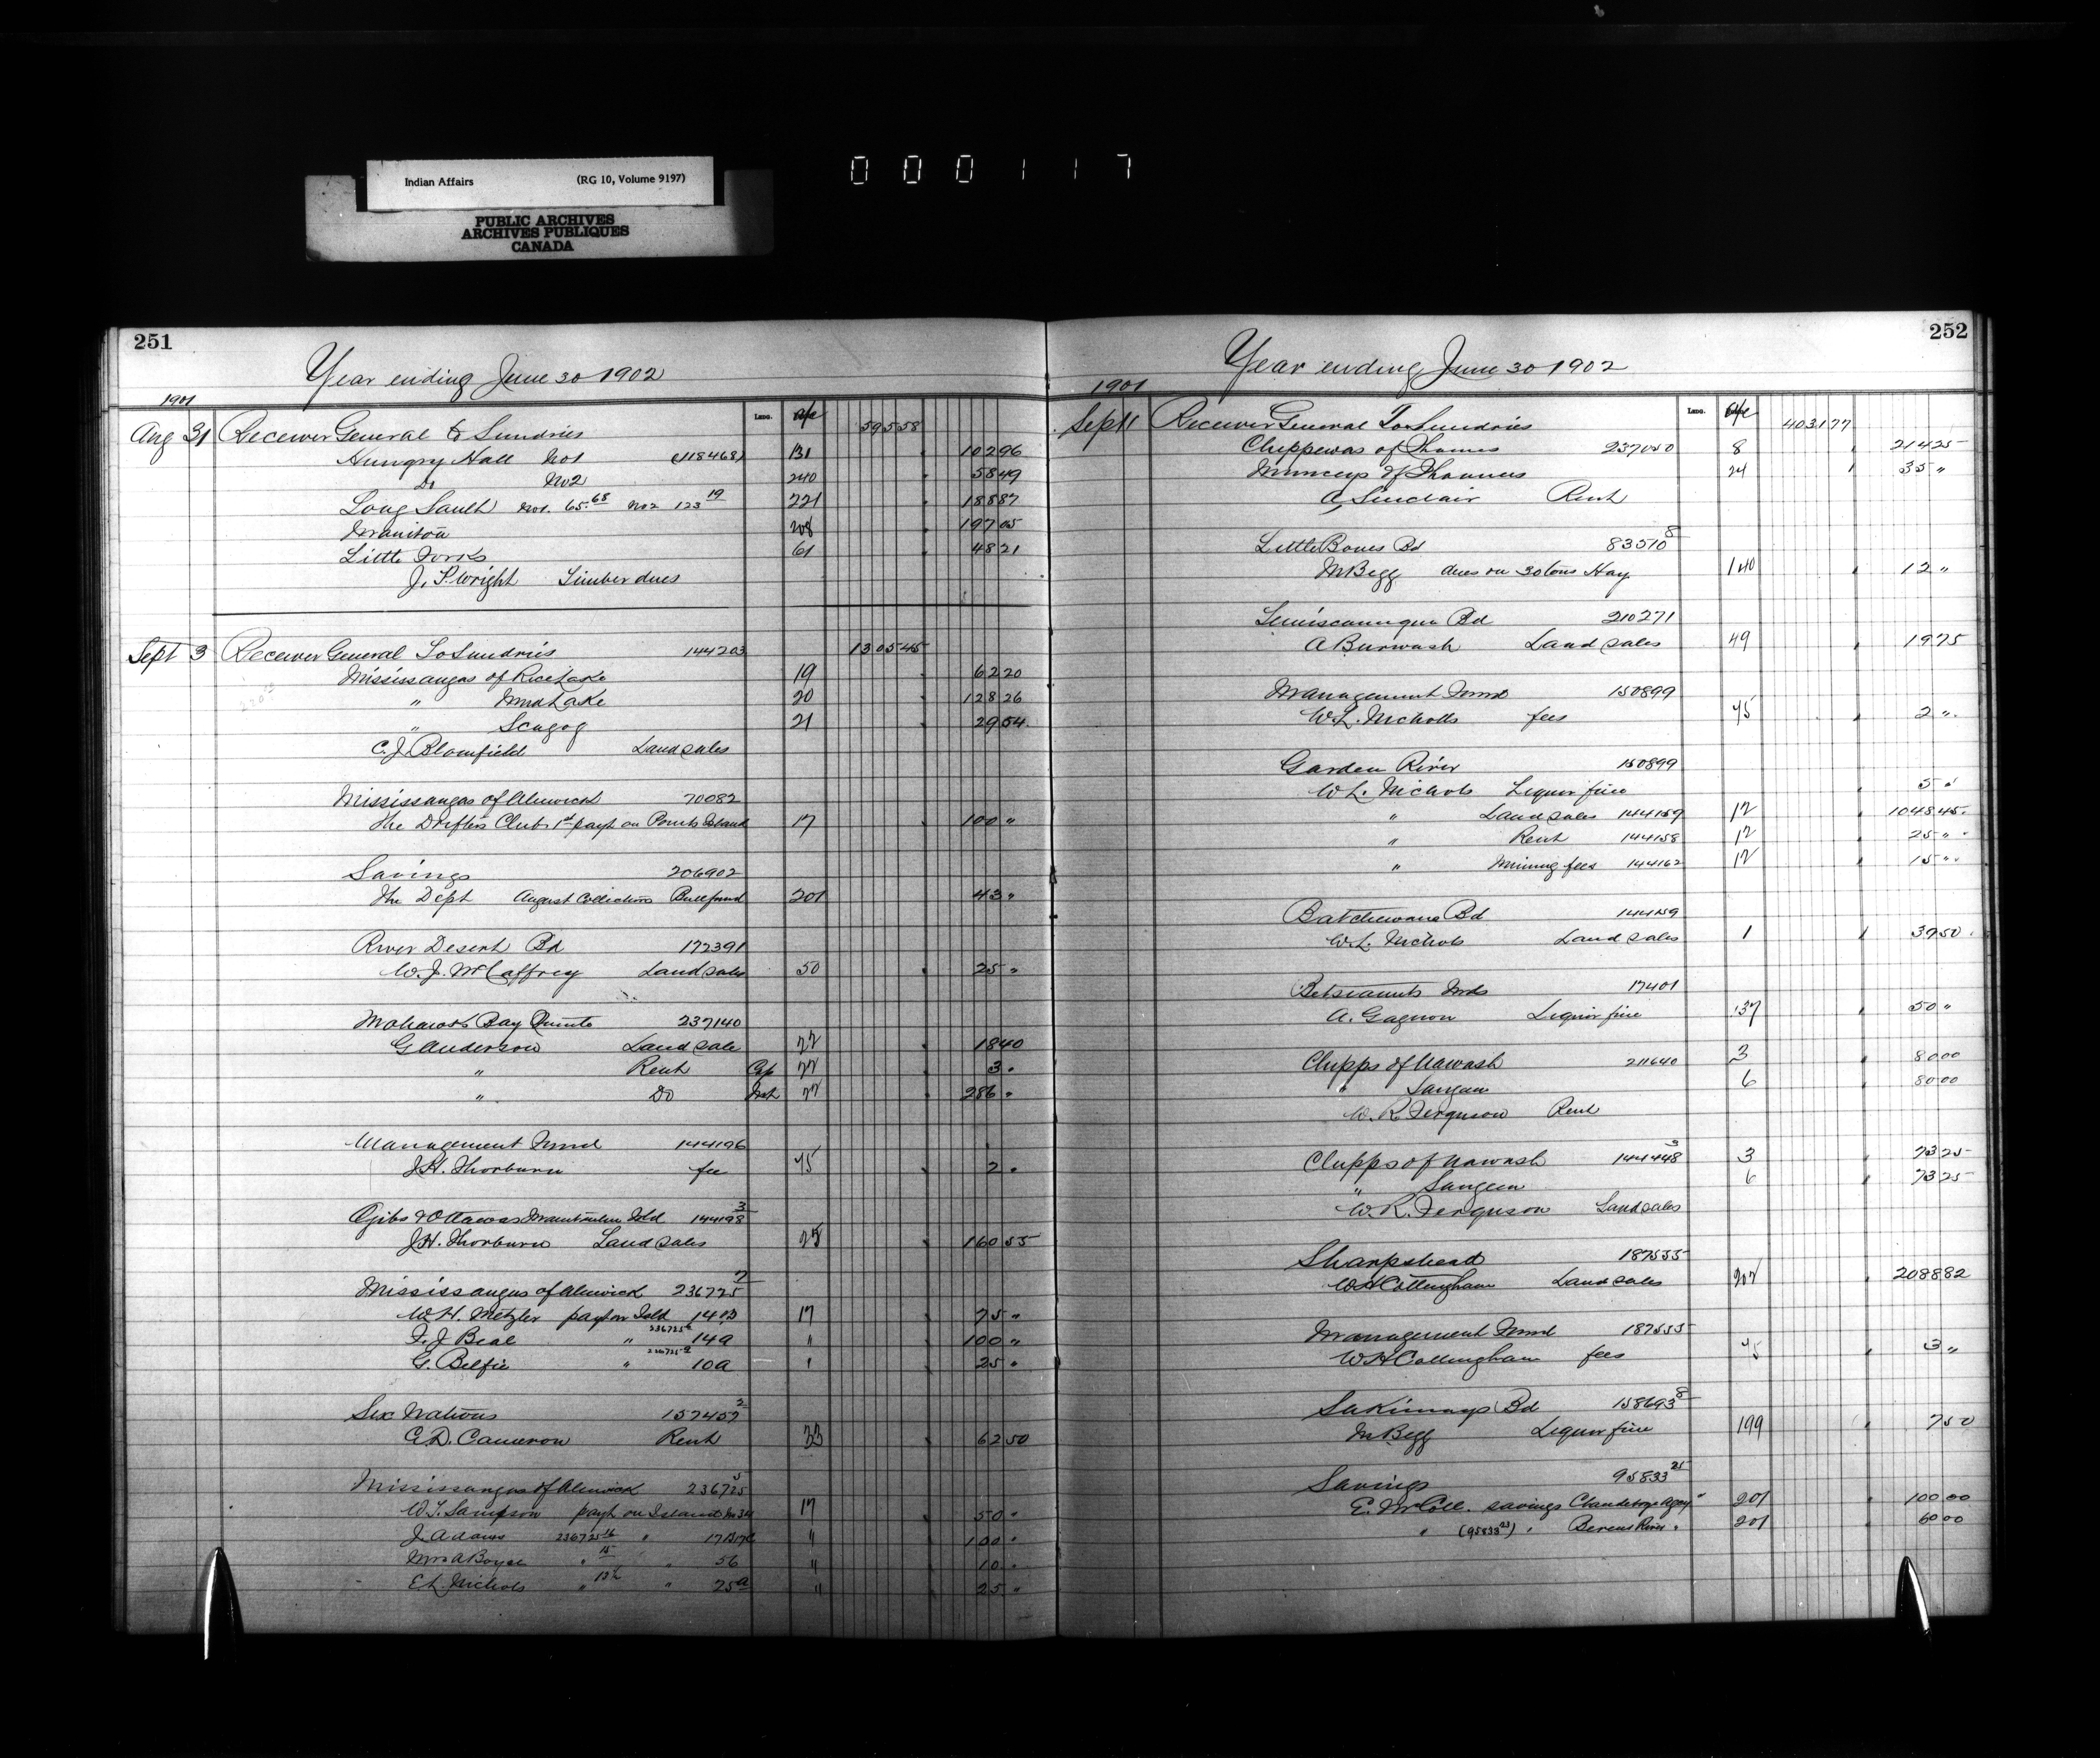 Indian Affairs (RG 10, Volume 9197)
PUBLIC ARCHIVES
ARCHIVES PUBLIQUES
CANADA
000117
251
Year ending June 30 1902
1901
Lano. a/c
Aug 31 Receiver General To Sundries 595 58
Hungry Hall No1 (118468) 131 102 96
Do No2 240 58 49
Long Sault No1. 65.68 No2 123 19 221 188 87
Manitou 208 197 05
Little Forks 61 48 21
J. P. Wright Timber dues
Sept 3 Receiver General To Sundries 144203 1305 45
Mississaugas of Rice Lake 19 62 20
" Mud Lake 20 128 26
" Scugog 21 29 54
C. J. Blomfield Land sales
Mississaugas of Alnwick 70082
The Drifters Club 1st payt on Island 17 100 "
Savings 206902
The Dept August Collections 201 43 "
River Desert Bd 172391
W. J. McCaffrey Land sales 50 25 "
Mohawks Bay Quinte 237140
G Anderson Land sale 22 18 40
" Rent Cap 22 3 "
" Do Int 22 286 "
Management Fund 144196
J. H. Thorburn fee 45 2 "
Ojibs & Ottawas Manitoulin Isld 144198 3
J. H. Thorburn Land sales 25 160 55
Mississaugas of Alnwick 236725 7
W. H. Metzler pay on Isld 14 17 75 "
F. J. Beal " 14a " 100 "
G. Belfie " 10a " 25 "
Six Nations 157457 2
E. D. Cameron Rent 33 62 50
Mississaugas of Alnwick 236725 5
W. T. Sampson payt on Island No 17 50 "
J. Adams 236725 16 " " 100 "
Mrs A Boyce " 15 " 56 " 10 "
E L Nichols " " 25a " 25 "
252
Year ending June 30 1902
1901
Lano. a/c
Sept 11 Receiver General To Sundries 4031 77
Chippewas of Thames 237050 8 214 25
Munceys of Thames 24 35 "
A Sinclair Rent
Little Bones Bd 83570 8
M Begg dues on 30 tons Hay 140 12 "
Temiscamingue Bd 210271
A Burwash Land sales 49 19 75
Management Fund 150899
W. L. Nicholls fees 45 2 "
Garden River 150899
W L. Nichols Liquor fine 5 "
" Land sales 144159 12 1048 45
" Rent 144158 12 25 "
" Mining fees 144162 12 15 "
Batchewana Bd 144159
W. L. Nichols Land sales 1 39 50
Betsiamits Inds 17401
A. Gagnon Liquor fine 137 50 "
Chipps of Nawash 211640 3 80 00
" Saugeen 6 80 00
W. R. Ferguson Rent
Chipps of Nawash 144448 3 3 73 25
" Saugeen 6 73 25
W. R. Ferguson Land sales
Sharpshead 187555
W H Cottingham Land sales 207 2088 82
Management Fund 187555
W H Cottingham fees 45 3 "
Sakimays Bd 158693 8
M Begg Liquor fine 199 7 50
Savings 95833 25
E. McColl. savings Clandeboye Agcy 201 100 00
" (95833 23) " Berens River " 201 60 00